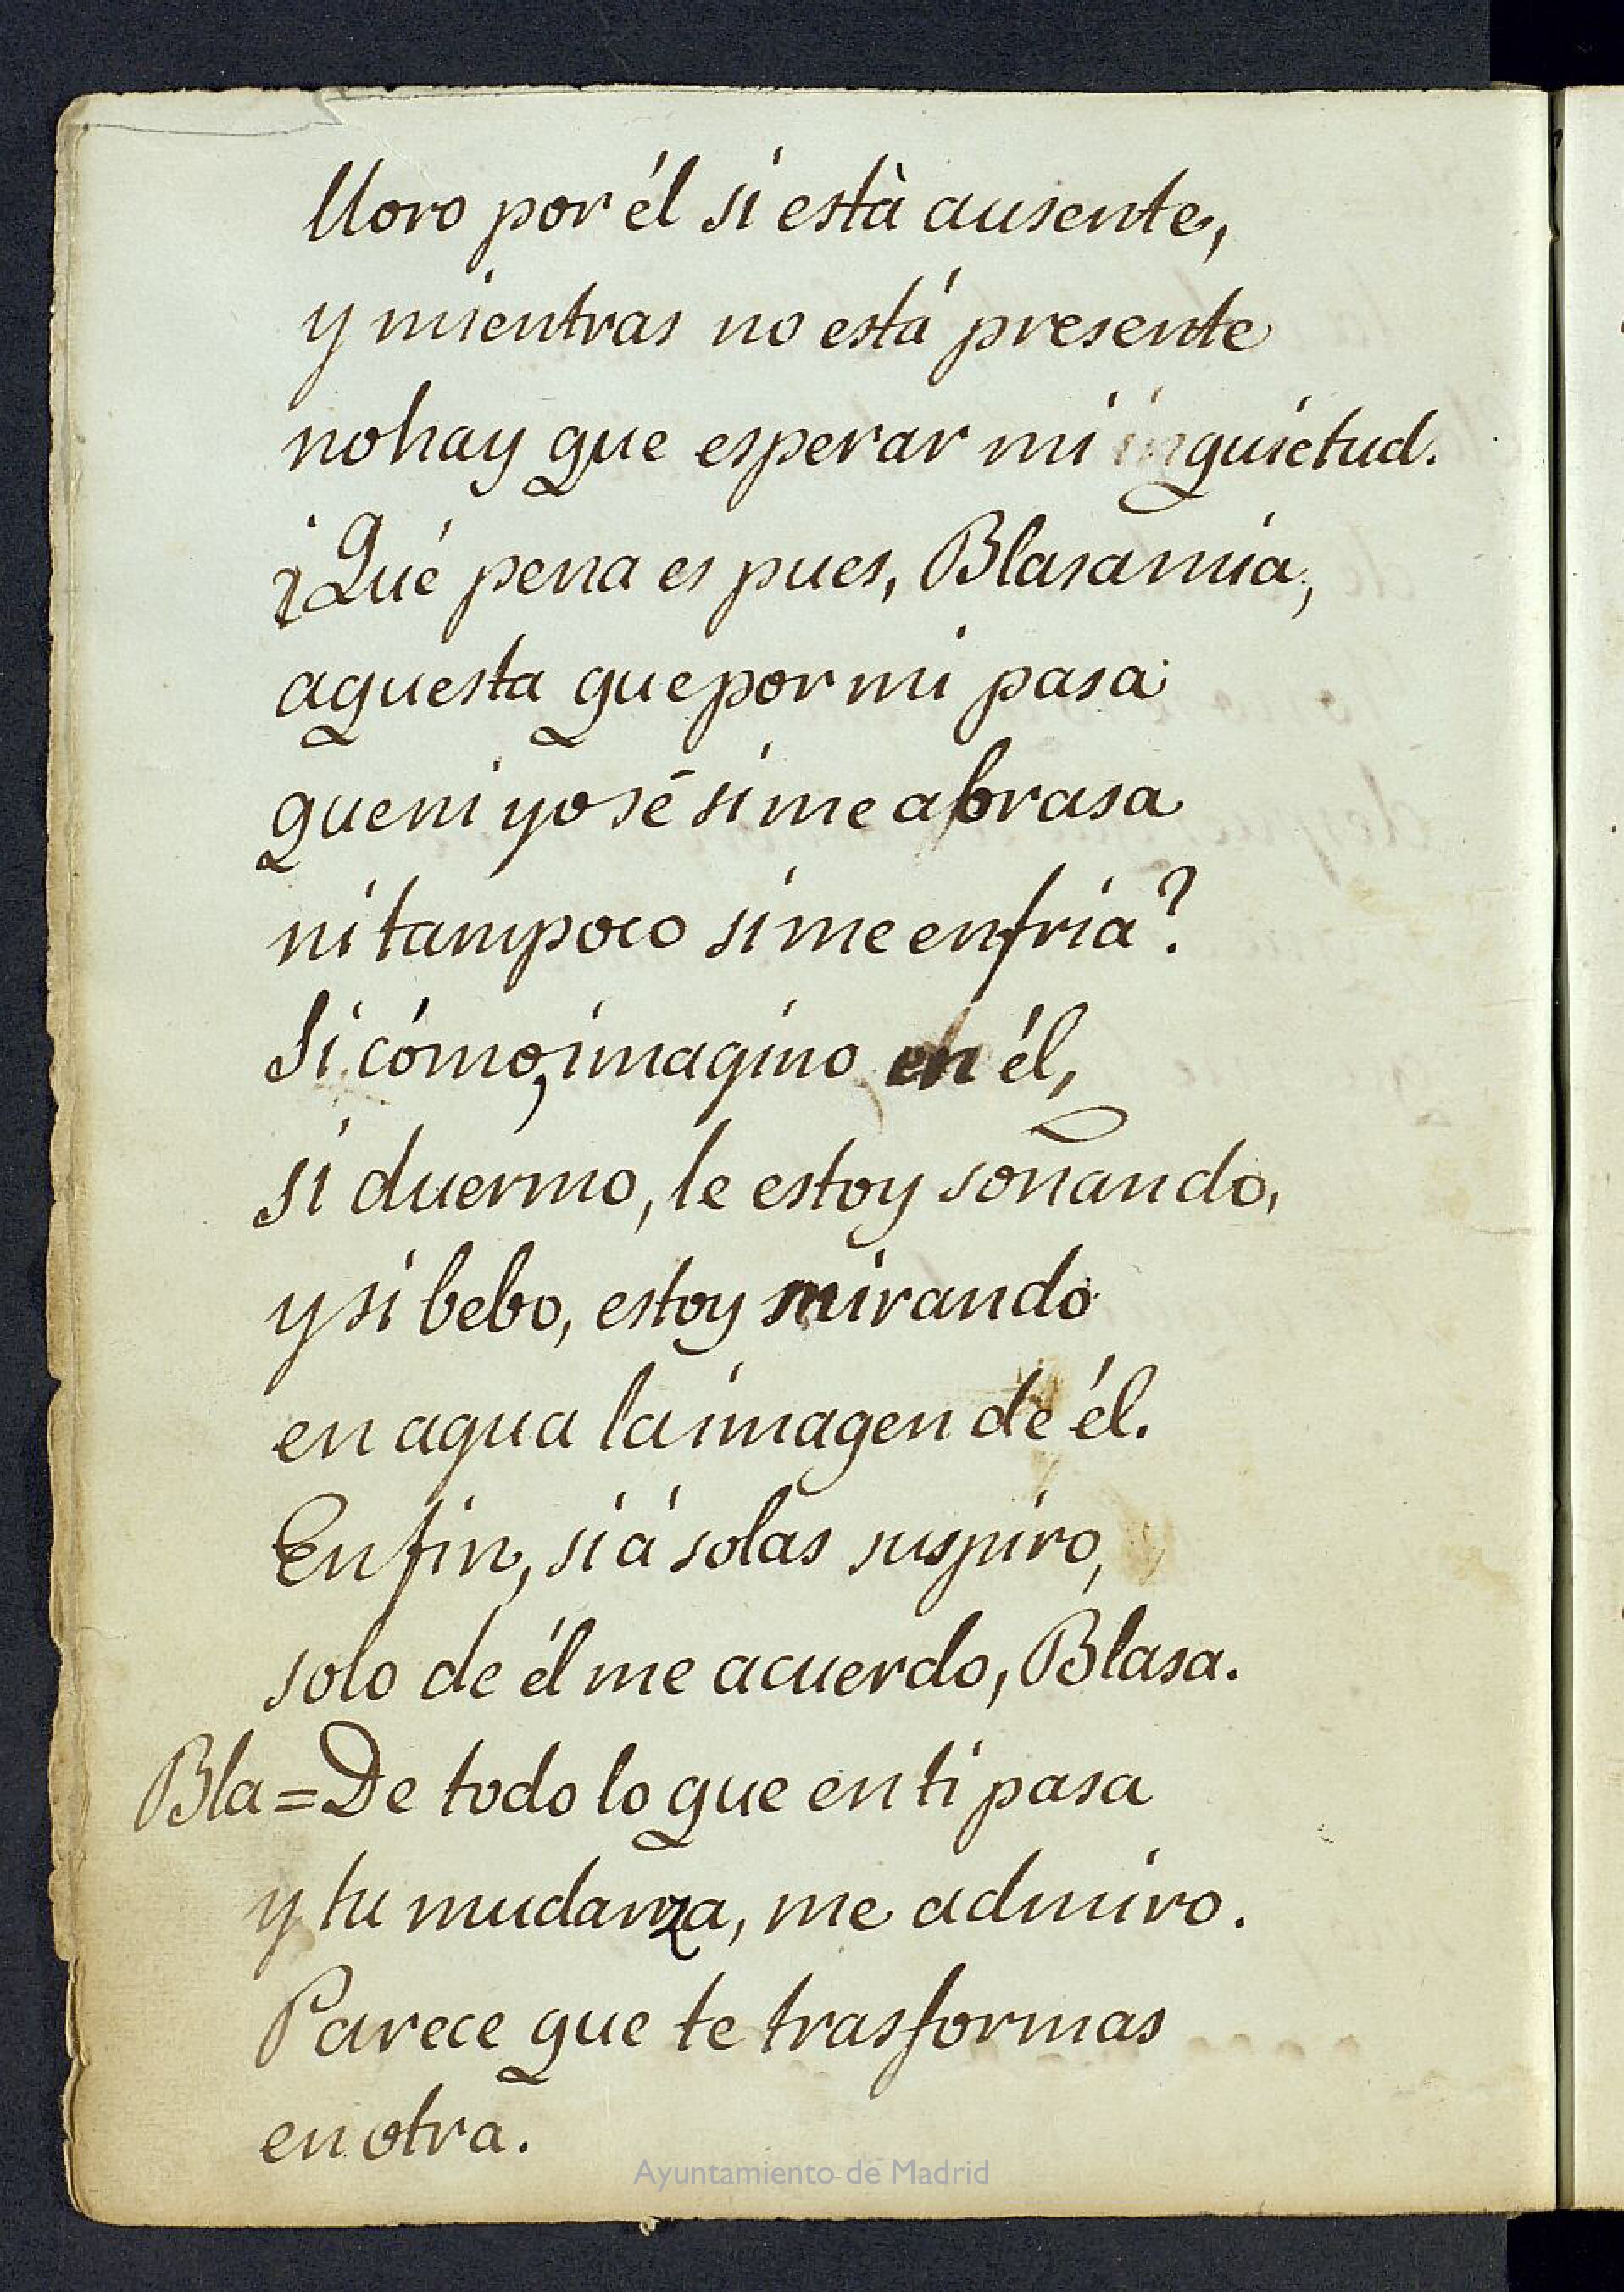 lloro por él si está ausente,
y mientras no está presente
no hay que esperar mi inquietud.
¿Qué pena es pues, Blasa mia,
aquesta que por mi pasa
que ni yo sé si me abrasa
ni tampoco si me enfria?
Si cómo, imagino en él,
si duermo, le estoy soñando,
y si bebo, estoy mirando
en agua la imagen de él.
En fin, si á solas suspiro,
solo de él me acuerdo, Blasa.
Bla = De todo lo que en ti pasa
y tu mudanza, me admiro.
Parece que te trasformas
en otra.
Ayuntamiento de Madrid